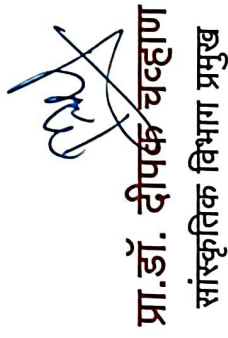 प्रा.डॉ. दीपक चव्हाण
सांस्कृतिक विभाग प्रमुख